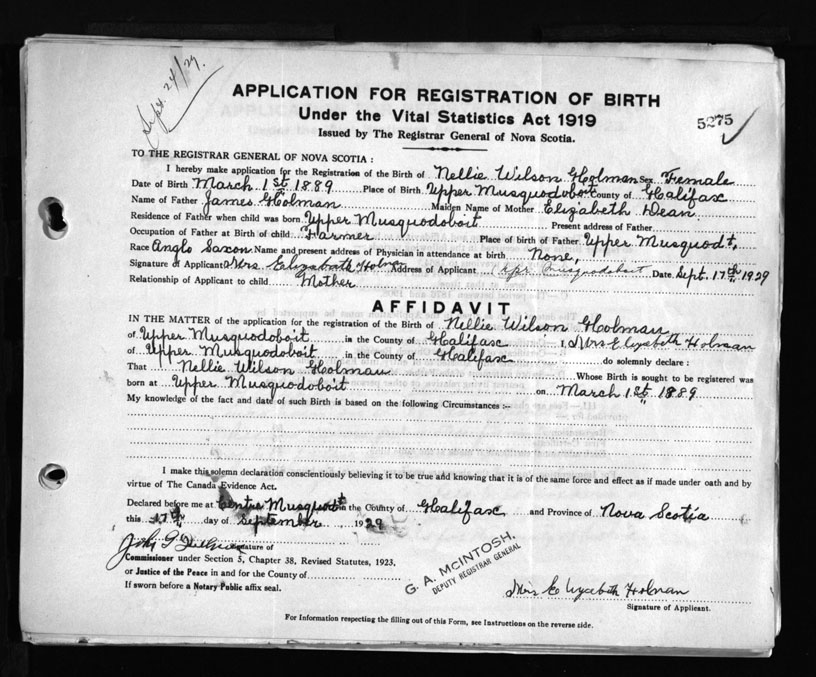 Sept. 24/29.
APPLICATION FOR REGISTRATION OF BIRTH
Under the Vital Statistics Act 1919
5275
Issued by The Registrar General of Nova Scotia.
TO THE REGISTRAR GENERAL OF NOVA SCOTIA :
I hereby make application for the Registration of the Birth of Nellie Wilson Holman Sex Female
Date of Birth March 1st 1889 Place of Birth Upper Musquodoboit County of Halifax
Name of Father James Holman Maiden Name of Mother Elizabeth Dean
Residence of Father when child was born Upper Musquodoboit Present address of Father
Occupation of Father at Birth of child Farmer Place of birth of Father Upper Musquodt,
Race Anglo Saxon Name and present address of Physician in attendance at birth None,
Signature of Applicant Mrs. Elizabeth Holman Address of Applicant Upr. Musquodoboit Date Sept. 17th, 1929
Relationship of Applicant to child Mother
AFFIDAVIT
IN THE MATTER of the application for the registration of the Birth of Nellie Wilson Holman
of Upper Musquodoboit in the County of Halifax I, Mrs Elizabeth Holman
of Upper Musquodoboit in the County of Halifax do solemnly declare :
That Nellie Wilson Holman Whose Birth is sought to be registered was
born at Upper Musquodoboit on March 1st 1889
My knowledge of the fact and date of such Birth is based on the following Circumstances :-
I make this solemn declaration conscientiously believing it to be true and knowing that it is of the same force and effect as if made under oath and by
virtue of The Canada Evidence Act.
Declared before me at Centre Musquodt in the County of Halifax and Province of Nova Scotia
this 17th day of September 1929
Signature of
Commissioner under Section 5, Chapter 38, Revised Statutes, 1923,
or Justice of the Peace in and for the County of
If sworn before a Notary Public affix seal.
G. A. McINTOSH,
DEPUTY REGISTRAR GENERAL
Mrs Elizabeth Holman
Signature of Applicant.
For Information respecting the filling out of this Form, see Instructions on the reverse side.